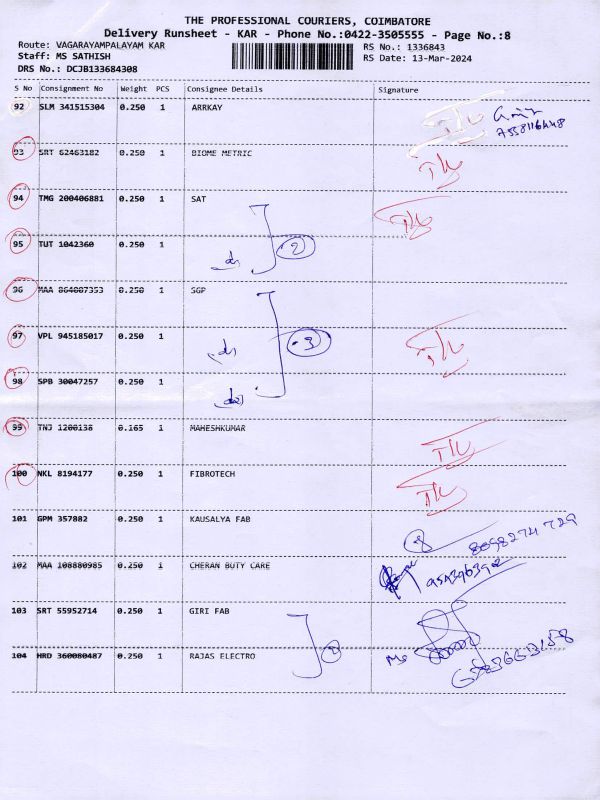 THE PROFESSIONAL COURIERS, COIMBATORE
Delivery Runsheet - KAR - Phone No.:0422-3505555 - Page No.:8
Route: VAGARAYAMPALAYAM KAR
RS No.: 1336843
Staff: MS SATHISH
RS Date: 13-Mar-2024
DRS No.: DCJB133684308
S No Consignment No Weight PCS Consignee Details Signature
92 SLM 341515304 0.250 1 ARRKAY
93 SRT 62463182 0.250 1 BIOME METRIC
94 TMG 200406881 0.250 1 SAT
95 TUT 1042360 0.250 1
2
96 MAA 864087353 0.250 1 SGP
97 VPL 945185017 0.250 1
3
98 SPB 30047257 0.250 1
99 TNJ 1200138 0.165 1 MAHESHKUMAR
100 NKL 8194177 0.250 1 FIBROTECH
101 GPM 357882 0.250 1 KAUSALYA FAB
8098274729
102 MAA 108880985 0.250 1 CHERAN BUTY CARE
103 SRT 55952714 0.250 1 GIRI FAB
104 HRD 360080487 0.250 1 RAJAS ELECTRO